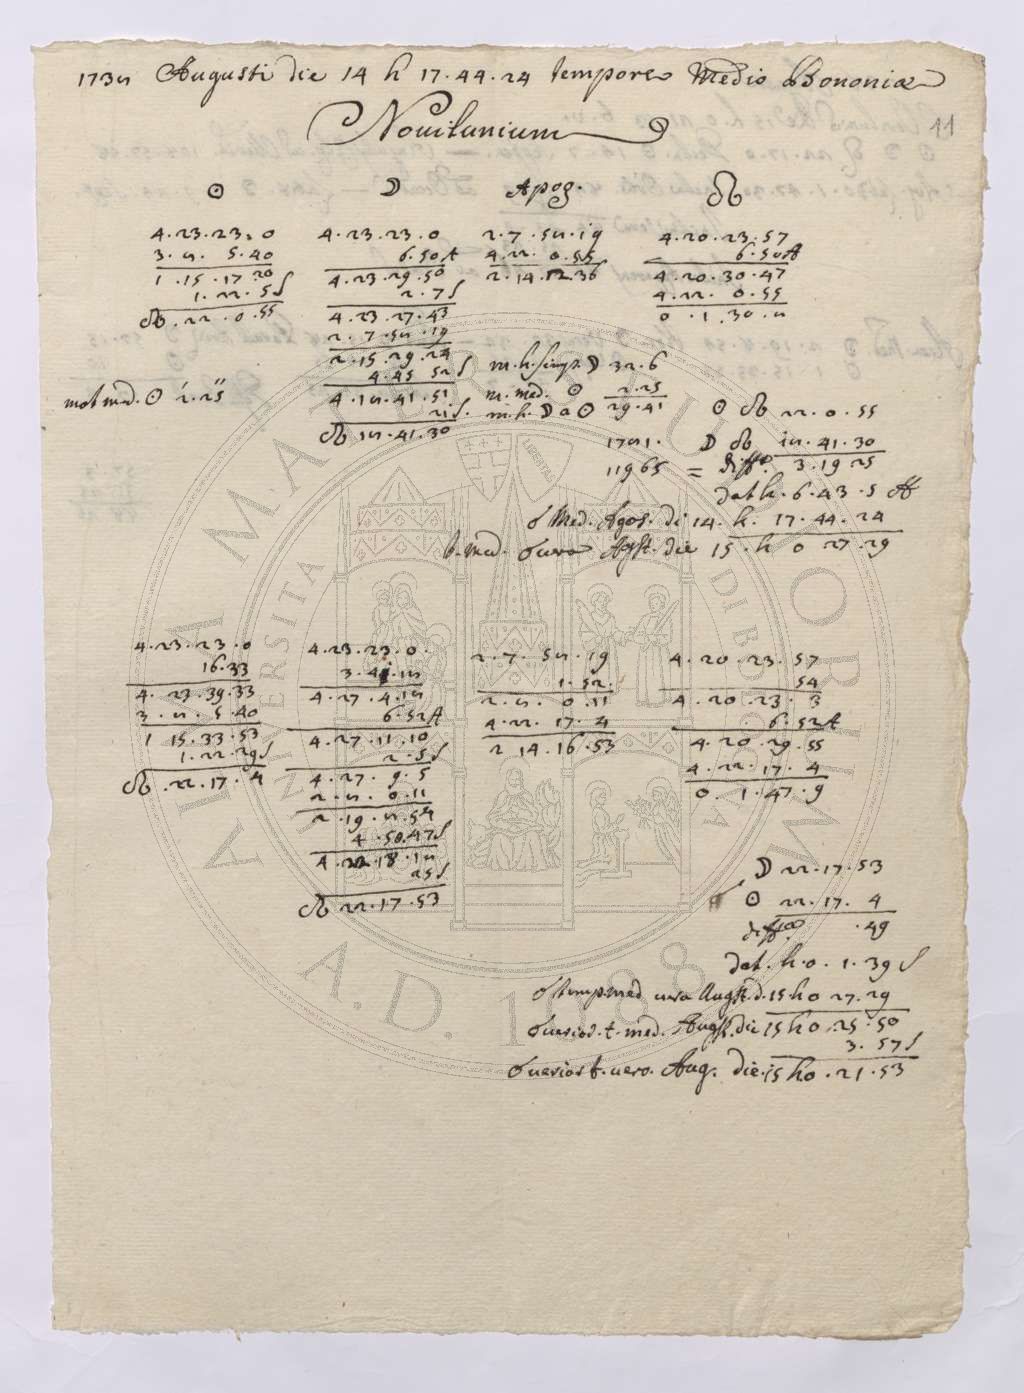 1738 Augusti die 14 h 17.44.24 tempore Medio Bononiæ
11
Novilunium
☉ ☽ Apog. ☊
4.23.23.0 4.23.23.0 2.7.58.19 4.20.23.57
3.8.5.40 6.50 A 4.22.0.55 6.50 A
1.15.17.20 4.23.29.50 2.14.2.36 4.20.30.47
1.22.5 S 2.7 S 4.22.0.55
♌ .22.0.55 4.23.27.43 0.1.30.8
2.7.58.19
2.15.29.24
4.45 52 S m.h. simp. ☽ 32.6
mot med. ☉ 2'.25'' 4.18.41.51 m. med. ☉ 2.25
21 S. m.h. ☽ a ☉ 29.41 ☉ ♌ 22.0.55
♌ 18.41.30 1781. ☽ ♌ 18.41.30
11965 = diffa. 3.19 25
dat h. 6.43.5 A
☌ Med. Agos. di 14. h. 17.44.24
t. med. ☌ vera Agst. die 15.h 0 27.29
4.23.23.0 4.23.23.0. 2.7.58.19 4.20.23.57
16.33 3.41.18 1.52. 54
4.23.39.33 4.27.4.18 2.8.0.11 4.20.23.3
3.8.5.40 6.52 A 4.22.17.4 6.52 A
1 15.33.53 4.27.11.10 2 14.16.53 4.20.29.55
1.22 29 S 2.5 S 4.22.17.4
♌ .22.17.4 4.27.9.5 0.1.47.9
2.8.0.11
2.19.8.54
4.50.47 S
4.22.18.18 ☽ 22.17.53
25 S ☉ 22.17.4
♌ 22.17.53 diffa. .49
dat. h.0.1.39 S
☌ temp med vera Augst. d. 15 h 0 27.29
☌ verior. t. med. Augst. die 15 h 0.25.50
3.57 S
☌ verior t. vero. Aug. die. 15 h 0.21.53
ALMA MATER STUDIORUM
A.D. 1088
UNIVERSITA DI BOLOGNA
LIBERTAS